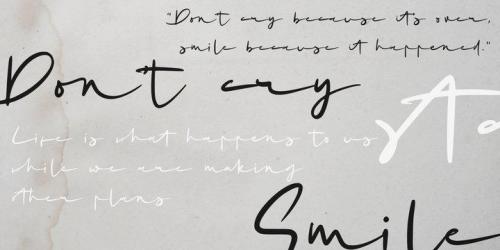 "Don't cry because it's over,
smile because it happened."
Don't cry
Life is what happens to us
while we are making
other plans
Smile